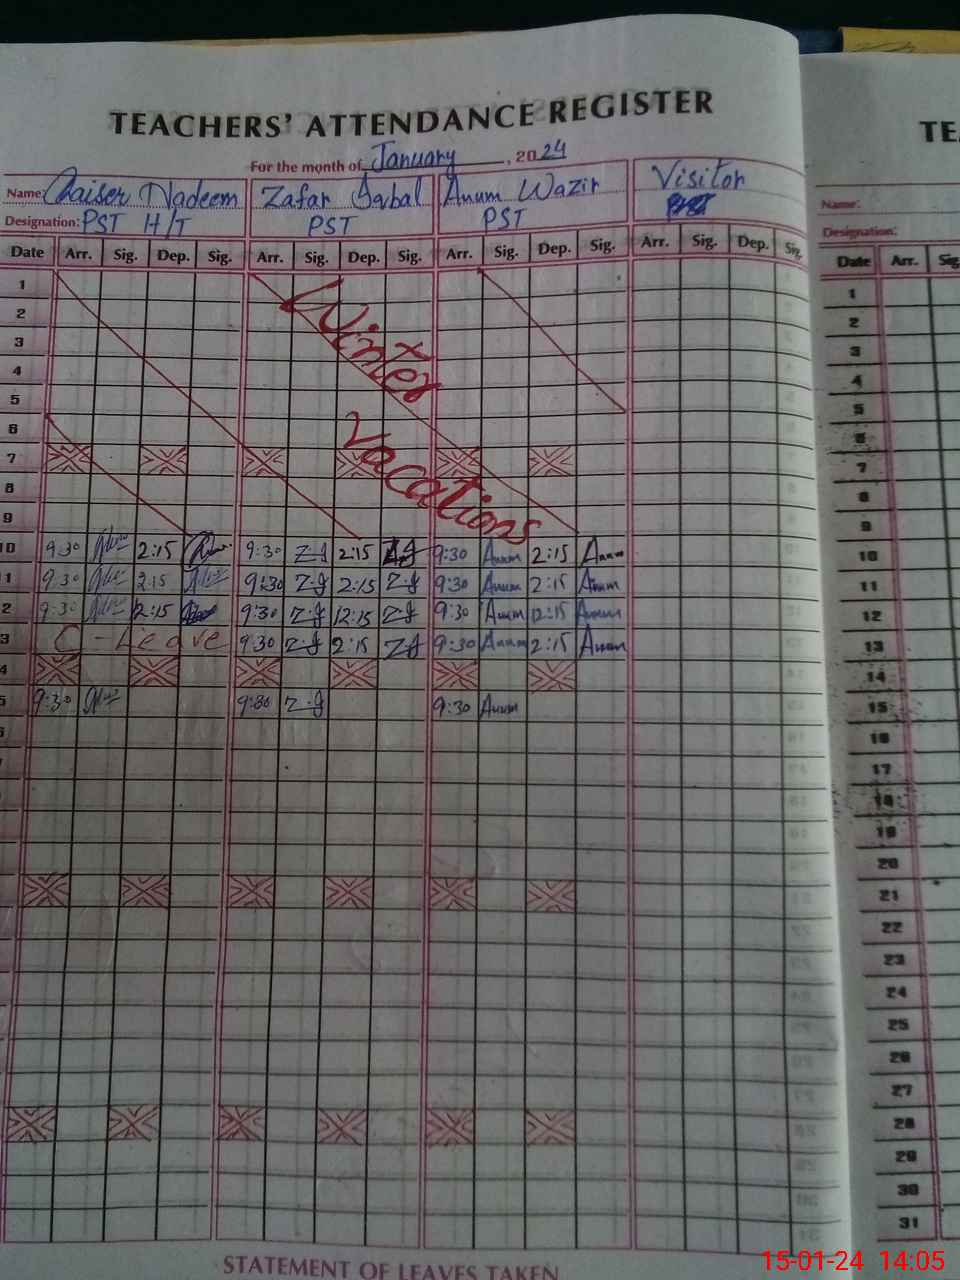 TEACHERS' ATTENDANCE REGISTER
For the month of January, 2024
Name: Qaiser Nadeem Zafar Iqbal Anum Wazir Visitor
Designation: PST H/T PST PST
Date Arr. Sig. Dep. Sig. Arr. Sig. Dep. Sig. Arr. Sig. Dep. Sig. Arr. Sig. Dep. Sig.
1
2
3
4
5
6
7
8
9
Winter
Vacations
10 9:30 2:15 9:30 Z.J 2:15 9:30 Anum 2:15 Anum
11 9:30 2:15 9:30 Z.J 2:15 Z.J 9:30 Anum 2:15 Anum
2 9:30 12:15 9:30 Z.J 12:15 Z.J 9:30 Anum 12:15 Anum
3 C-Leave 9:30 Z.J 2:15 Z.J 9:30 Anum 2:15 Anum
4
5 9:30 9:30 Z.J 9:30 Anum
STATEMENT OF LEAVES TAKEN
TE
Name:
Designation:
Date Arr. Sig
1
2
3
4
5
6
7
8
9
10
11
12
13
14
15
16
17
18
19
20
21
22
23
24
25
26
27
28
29
30
31
15-01-24 14:05